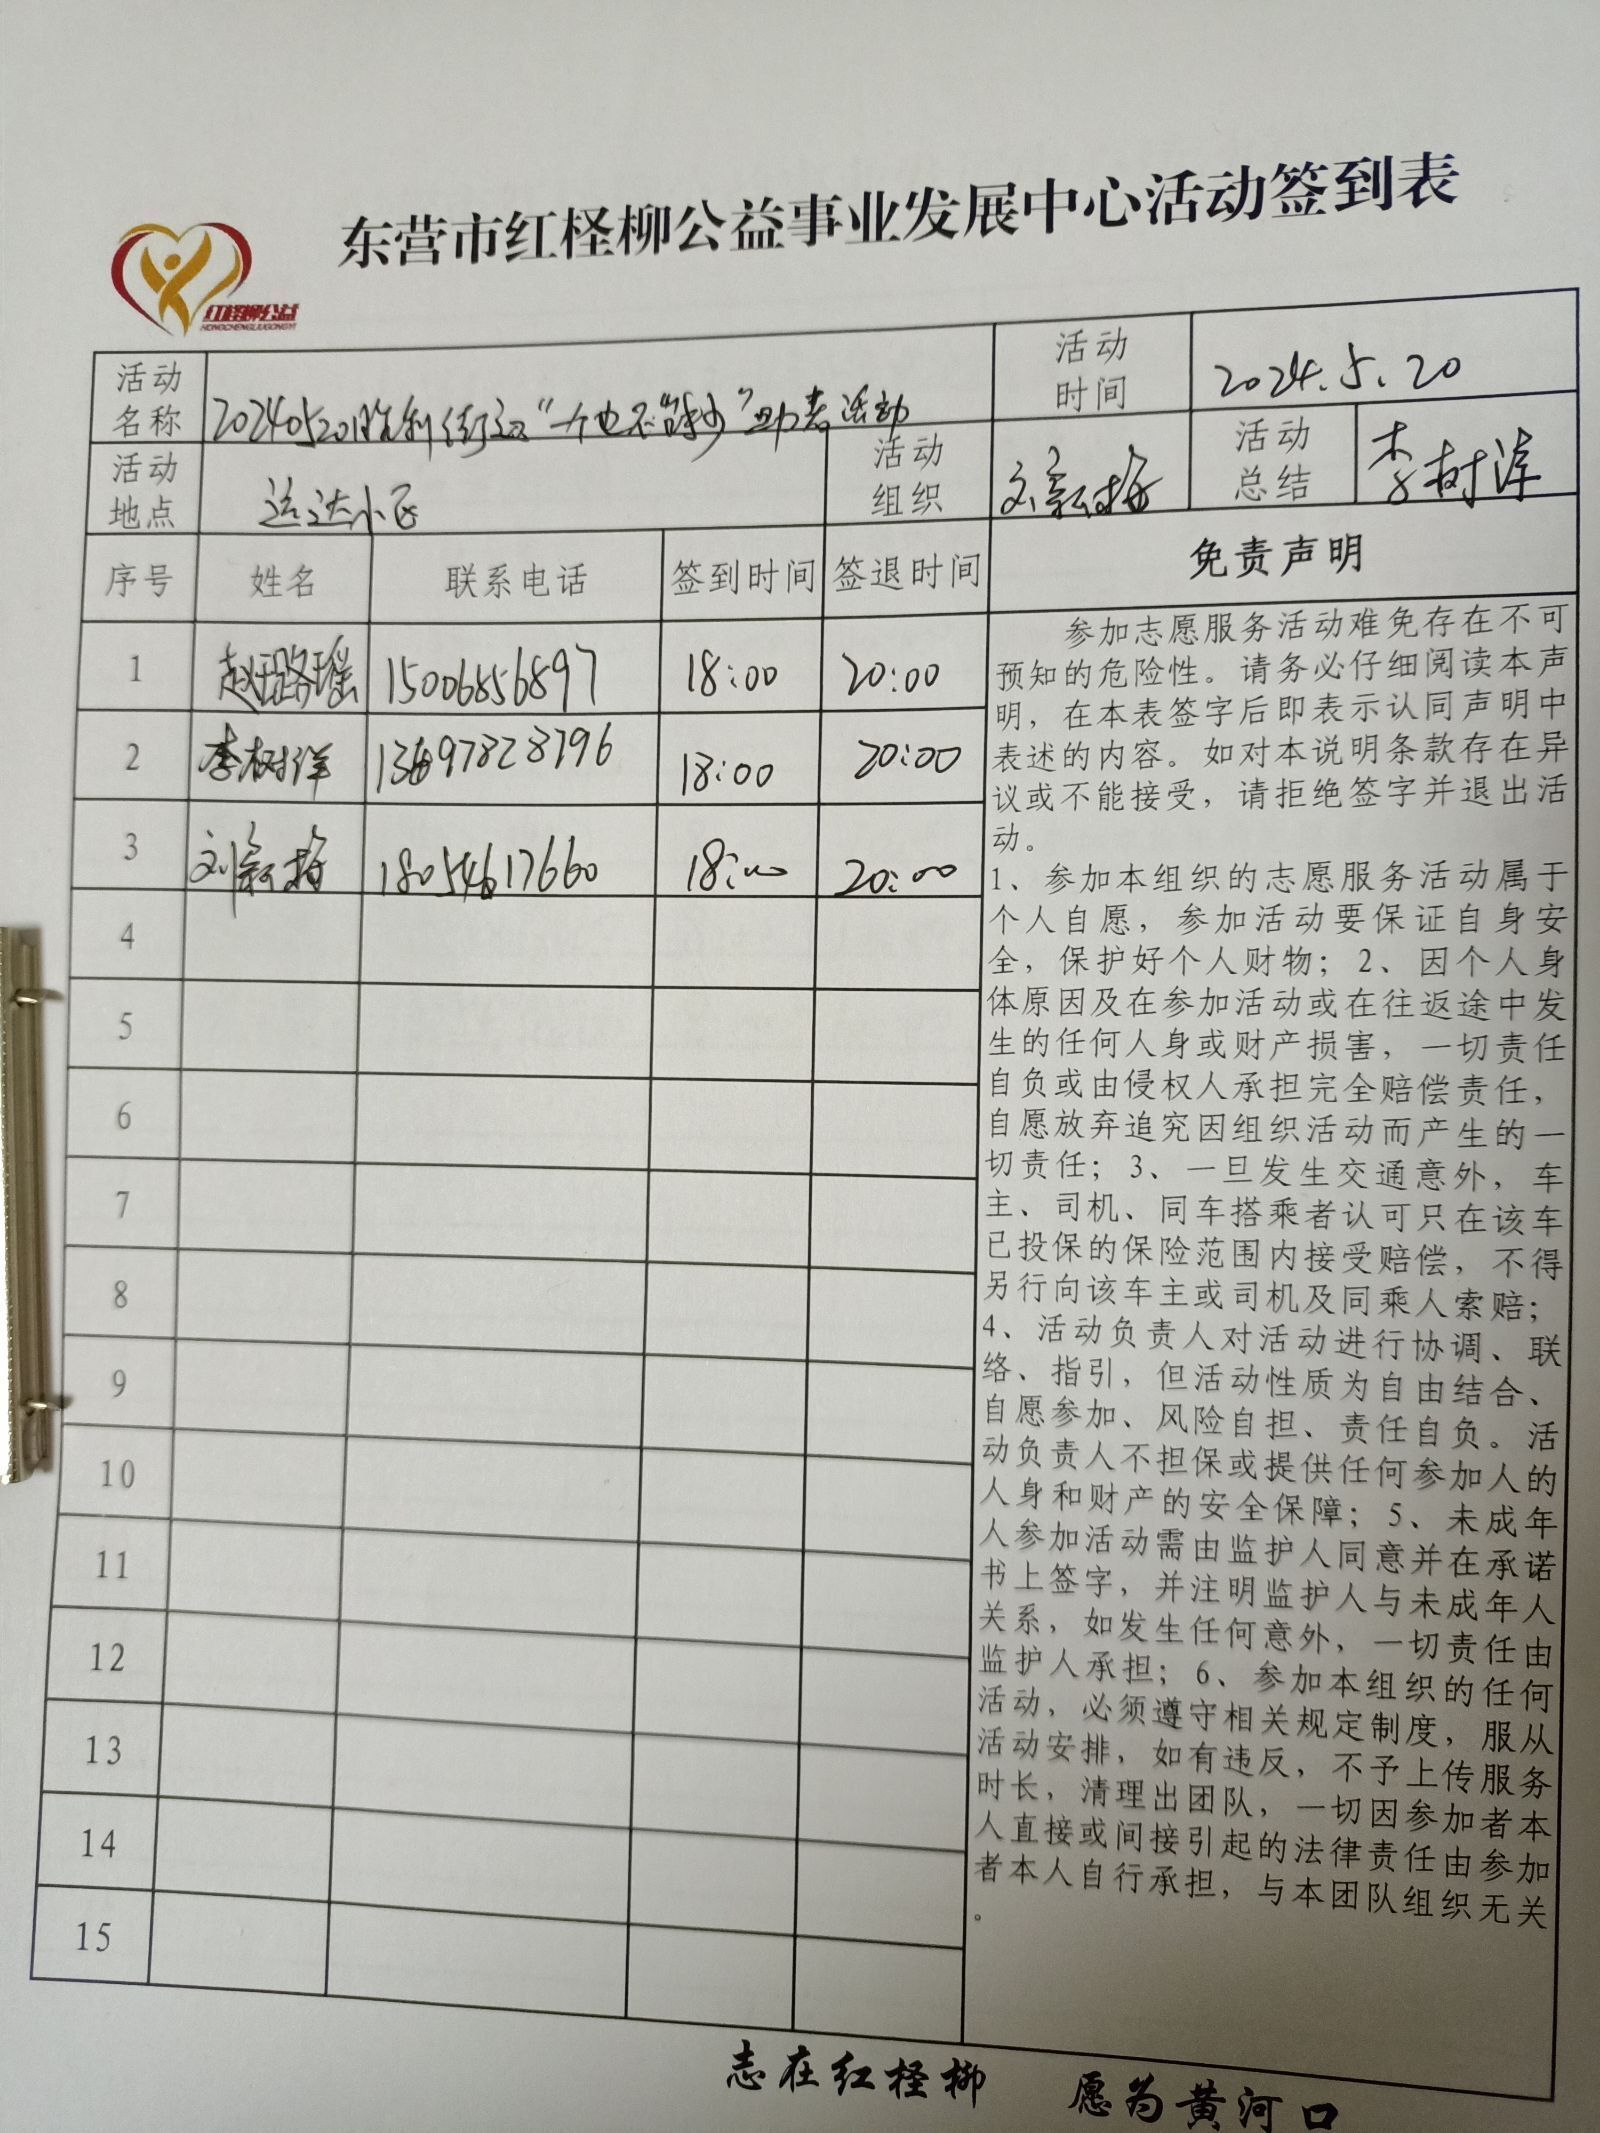 东营市红柽柳公益事业发展中心活动签到表
红柽柳公益
HONGCHENGLIUGONGYI
活动名称
20240520胜利街道"一个也不能少"助老活动
活动时间
2024.5.20
活动地点
运达小区
活动组织
刘新梅
活动总结
李树洋
序号 姓名 联系电话 签到时间 签退时间 免责声明
1 赵璐瑶 15006856897 18:00 20:00
2 李树洋 18:00 20:00
3 刘新梅 18054617660 18:00 20:00
4
5
6
7
8
9
10
11
12
13
14
15
参加志愿服务活动难免存在不可
预知的危险性。请务必仔细阅读本声
明，在本表签字后即表示认同声明中
表述的内容。如对本说明条款存在异
议或不能接受，请拒绝签字并退出活
动。
1、参加本组织的志愿服务活动属于
个人自愿，参加活动要保证自身安
全，保护好个人财物；2、因个人身
体原因及在参加活动或在往返途中发
生的任何人身或财产损害，一切责任
自负或由侵权人承担完全赔偿责任，
自愿放弃追究因组织活动而产生的一
切责任；3、一旦发生交通意外，车
主、司机、同车搭乘者认可只在该车
已投保的保险范围内接受赔偿，不得
另行向该车主或司机及同乘人索赔；
4、活动负责人对活动进行协调、联
络、指引，但活动性质为自由结合、
自愿参加、风险自担、责任自负。活
动负责人不担保或提供任何参加人的
人身和财产的安全保障；5、未成年
人参加活动需由监护人同意并在承诺
书上签字，并注明监护人与未成年人
关系，如发生任何意外，一切责任由
监护人承担；6、参加本组织的任何
活动，必须遵守相关规定制度，服从
活动安排，如有违反，不予上传服务
时长，清理出团队，一切因参加者本
人直接或间接引起的法律责任由参加
者本人自行承担，与本团队组织无关
。
志在红柽柳 愿为黄河口